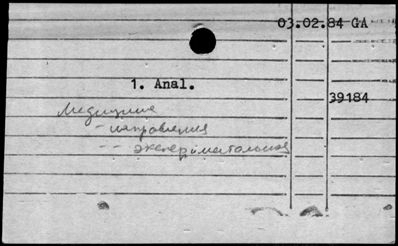 03.02.84 GA
1. Anal.
39184
Медицина
- направления
- - экспериментальное